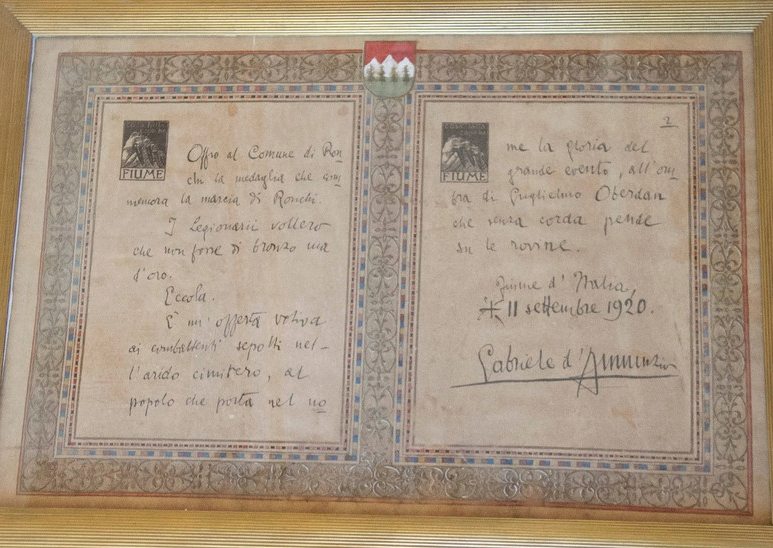 FIUME
Offro al Comune di Ron
chi la medaglia che com
memora la marcia di Ronchi.
I Legionarii vollero
che non fosse di bronzo ma
d'oro.
Eccola.
È un'offerta votiva
ai combattenti sepolti nel-
l'arido cimitero, al
popolo che porta nel no
2
FIUME
me la gloria del
grande evento, all'om
bra di Guglielmo Oberdan
che senza corda pende
su le rovine.
Fiume d'Italia,
11 settembre 1920.
Gabriele d'Annunzio